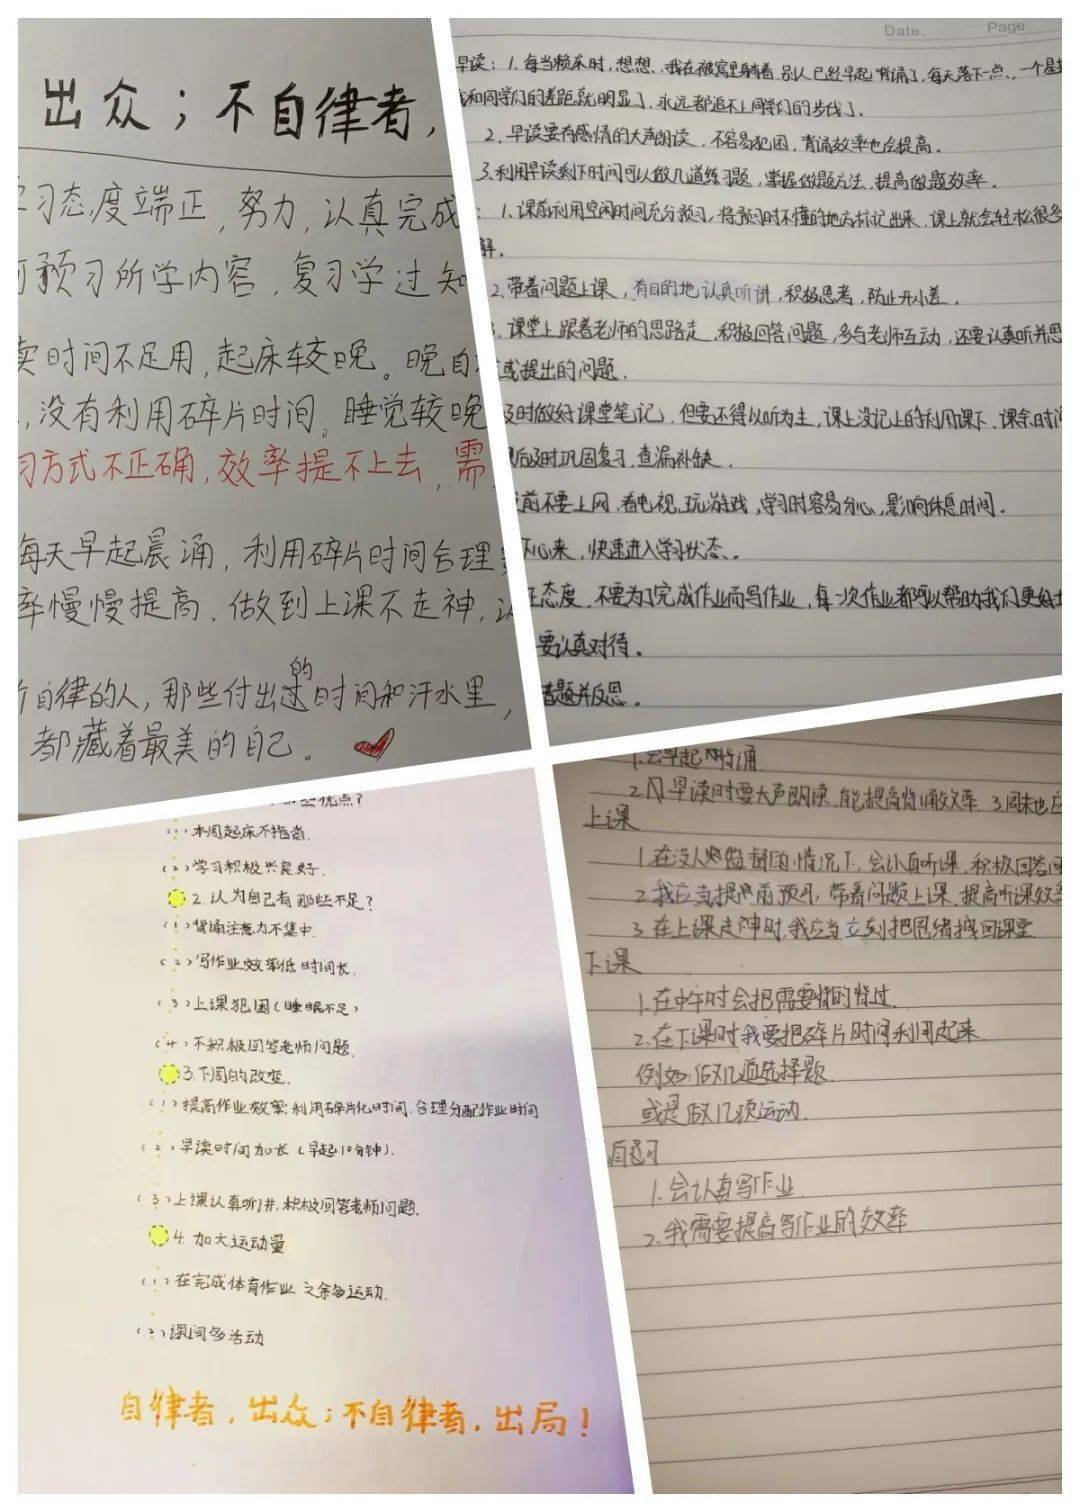 出众；不自律者，
习态度端正，努力，认真完成
预习所学内容，复习学过知
时间不足用，起床较晚。晚自
，没有利用碎片时间。睡觉较晚
习方式不正确，效率提不上去，需
每天早起晨诵，利用碎片时间合理
率慢慢提高，做到上课不走神，认
自律的人，那些付出过的时间和汗水里，
都藏着最美的自己。
Date. Page.
早读：1.每当赖床时，想想，我在被窝里躺着，别人已经早起背诵了，每天落下一点，一个星期
我和同学们的差距就明显了，永远都追不上同学们的步伐了。
2.早读要有感情的大声朗读，不容易犯困，背诵效率也会提高。
3.利用早读剩下时间可以做几道练习题，掌握做题方法，提高做题效率。
：1.课前利用空闲时间充分预习，将预习时不懂的地方标记出来，课上就会轻松很多
解。
2.带着问题上课，有目的地认真听讲，积极思考，防止开小差。
3.课堂上跟着老师的思路走，积极回答问题，多与老师互动，还要认真听并思
或提出的问题。
及时做好课堂笔记，但要还得以听为主，课上没记上的利用课下、课余时间
后及时巩固复习，查漏补缺。
前不要上网、看电视、玩游戏，学习时容易分心，影响休息时间。
下心来，快速进入学习状态。
正态度，不要为了完成作业而写作业，每一次作业都可以帮助我们更好地
要认真对待。
错题并反思。
优点？
（1）本周起床不拖沓.
（2）学习积极兴良好.
2.认为自己有那些不足？
（1）背诵注意力不集中.
（2）写作业效率低时间长.
（3）上课犯困（睡眠不足）
（4）不积极回答老师问题.
3.下周的改变.
（1）提高作业效率：利用碎片化时间.合理分配作业时间
（2）早读时间加长（早起10分钟）.
（3）上课认真听讲.积极回答老师问题.
4.加大运动量
（1）在完成体育作业之余多运动.
（2）课间多活动
自律者，出众；不自律者，出局！
1.会早起背诵
2.早读时要大声朗读，能提高背诵效率 3.周末也应
上课
1.在没人监督的情况下，会认真听课，积极回答问
2.我应当提前预习，带着问题上课，提高听课效率
3.在上课走神时，我应当立刻把思绪找回课堂
下课
1.在中午时会把需要背的背过.
2.在下课时我要把碎片时间利用起来
例如：做几道选择题.
或是做几项运动.
自习
1.会认真写作业.
2.我需要提高写作业的效率